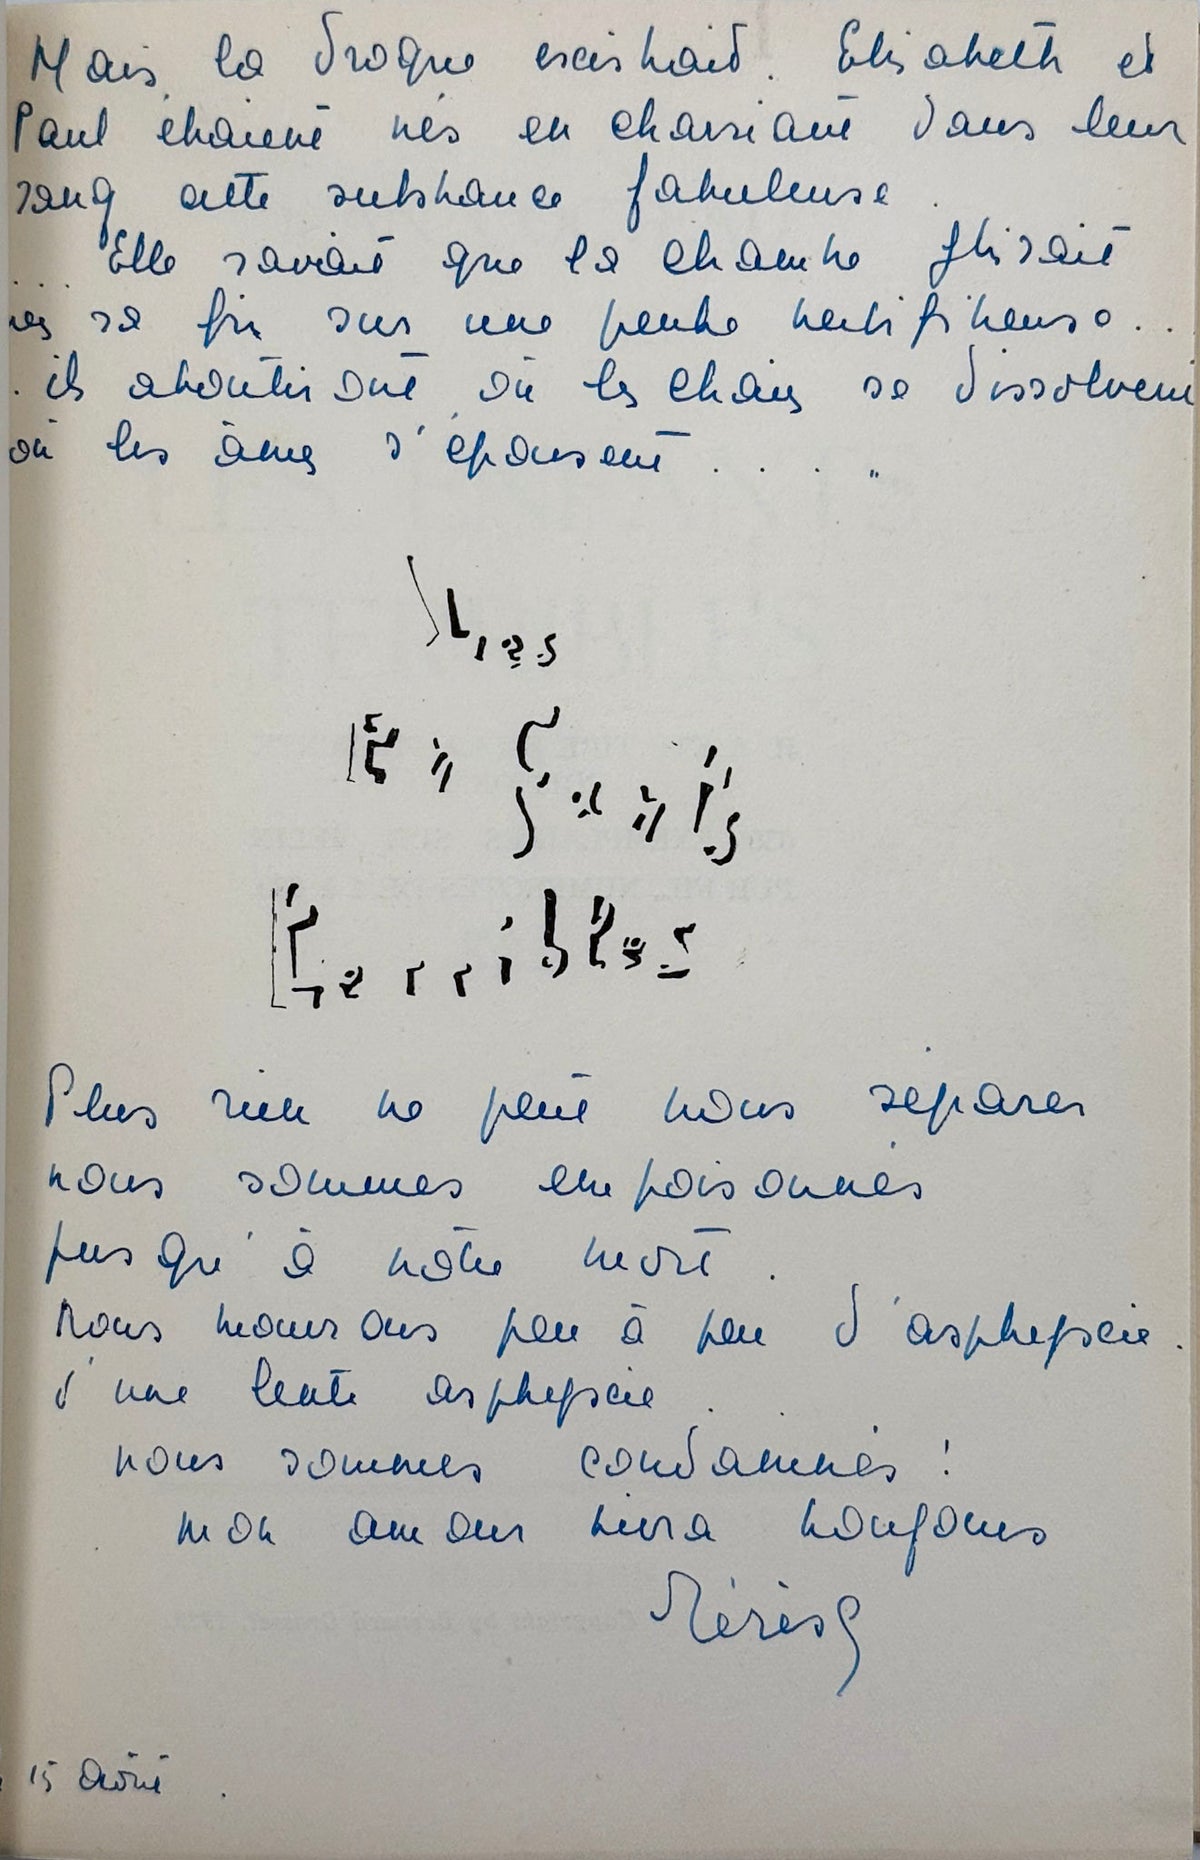 Mais, la drogue existait. Elisabeth et
Paul étaient nés en charriant dans leur
sang cette substance fabuleuse.
... Elle savait que la chambre glissait
vers sa fin sur une pente vertigineuse...
. ils aboutissent, où les chairs se dissolvent
où les âmes s'épousent . . . . "
Les
Enfants
Terribles
Plus rien ne peut nous séparer
nous sommes empoisonnés
jusqu'à nôtre mort.
Nous mourrons peu à peu d'asphyxie.
d'une lente asphyxie.
nous sommes condamnés !
mon amour vivra toujours
15 Août.